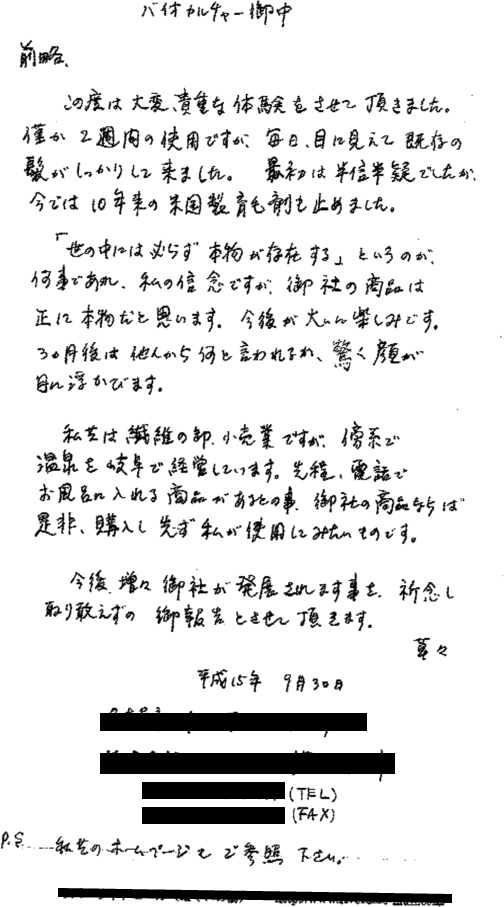 バイオカルチャー御中
前略、
この度は大変、貴重な体験をさせて頂きました。
僅か2週間の使用ですが、毎日、目に見えて既存の
髪がしっかりして来ました。 最初は半信半疑でしたが、
今では10年来の米国製育毛剤も止めました。
「世の中には必らず本物が存在する」というのが、
何事であれ、私の信念ですが、御社の商品は
正に本物だと思います。今後が大いに楽しみです。
3ヵ月後は他人から何と言われるか、驚く顔が
目に浮かびます。
私共は繊維の卸、小売業ですが、傍系で
温泉を岐阜で経営しています。先程、電話で
お風呂に入れる商品があるとの事、御社の商品ならば
是非、購入し先ず私が使用してみたいものです。
今後、増々御社が発展されます事を、祈念し
取り敢えずの御報告とさせて頂きます。
草々
平成15年 9月30日
(TEL)
(FAX)
P.S. 私共のホームページもご参照下さい。